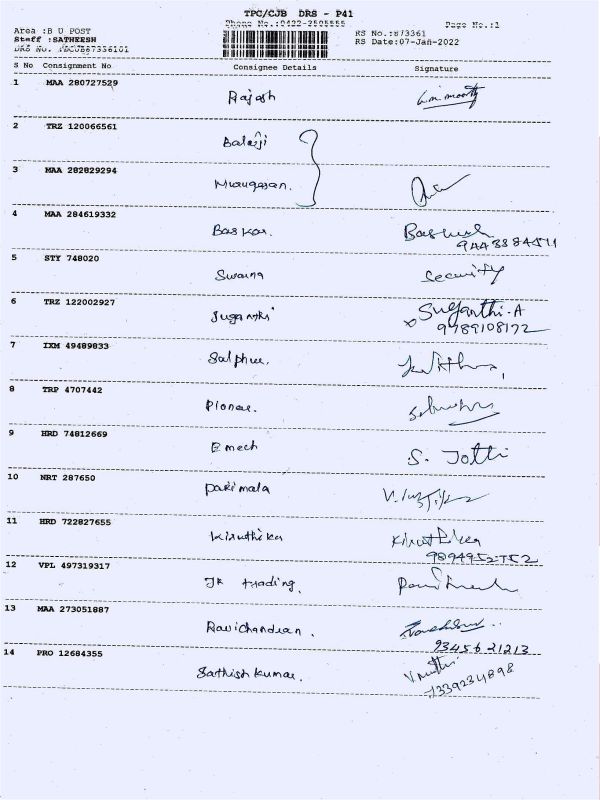 TPC/CJB DRS - P41
Phone No.:0422-2505555
Page No.:1
Area :B U POST
Staff :SATHEESH
RS No.:873361
RS Date:07-Jan-2022
S No Consignment No Consignee Details Signature
1 MAA 280727529 Rajesh
2 TRZ 120066561 Balaji
3 MAA 282829294 Murugesan.
4 MAA 284619332 Baskar.
5 STY 748020 Swarna Security
6 TRZ 122002927 Suganthi Suganthi.A
9789108172
7 IXM 49489833
8 TRP 4707442
9 HRD 74812669 Emech S. Jotti
10 NRT 287650 Parimala
11 HRD 722827655 Kiruthika Kiruthika
9894952752
12 VPL 497319317 JK trading.
13 MAA 273051887 Ravichandran.
9345621213
14 PRO 12684355 Sathish kumar.
7339234898